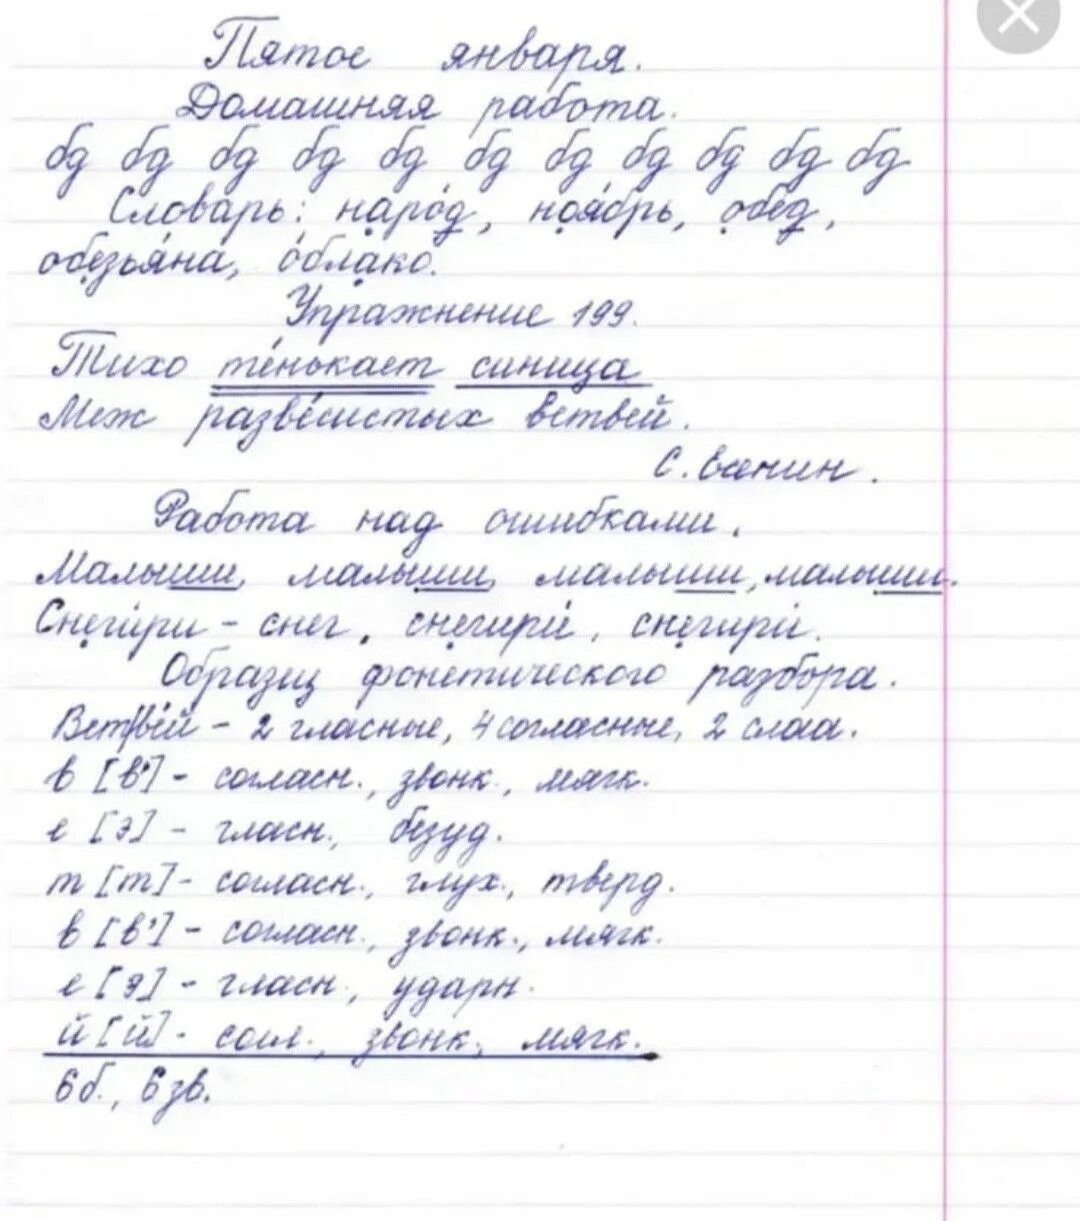 Пятое января.
Домашняя работа.
бд бд бд бд бд бд бд бд бд бд бд
Словарь: народ, ноябрь, обед,
обезьяна, облако.
Упражнение 199.
Тихо тенькает синица
Меж развесистых ветвей.
С. Ванин.
Работа над ошибками.
Малыши, малыши, малыши, малыши.
Снегири – снег, снегири, снегири.
Образец фонетического разбора.
Ветвей – 2 гласные, 4 согласные, 2 слога.
в [в'] – согласн., звонк., мягк.
е [э] – гласн., безуд.
т [т] – согласн., глух., тверд.
в [в'] – согласн., звонк., мягк.
е [э] – гласн., ударн.
й [й] – согл., звонк., мягк.
6 б., 6 зв.